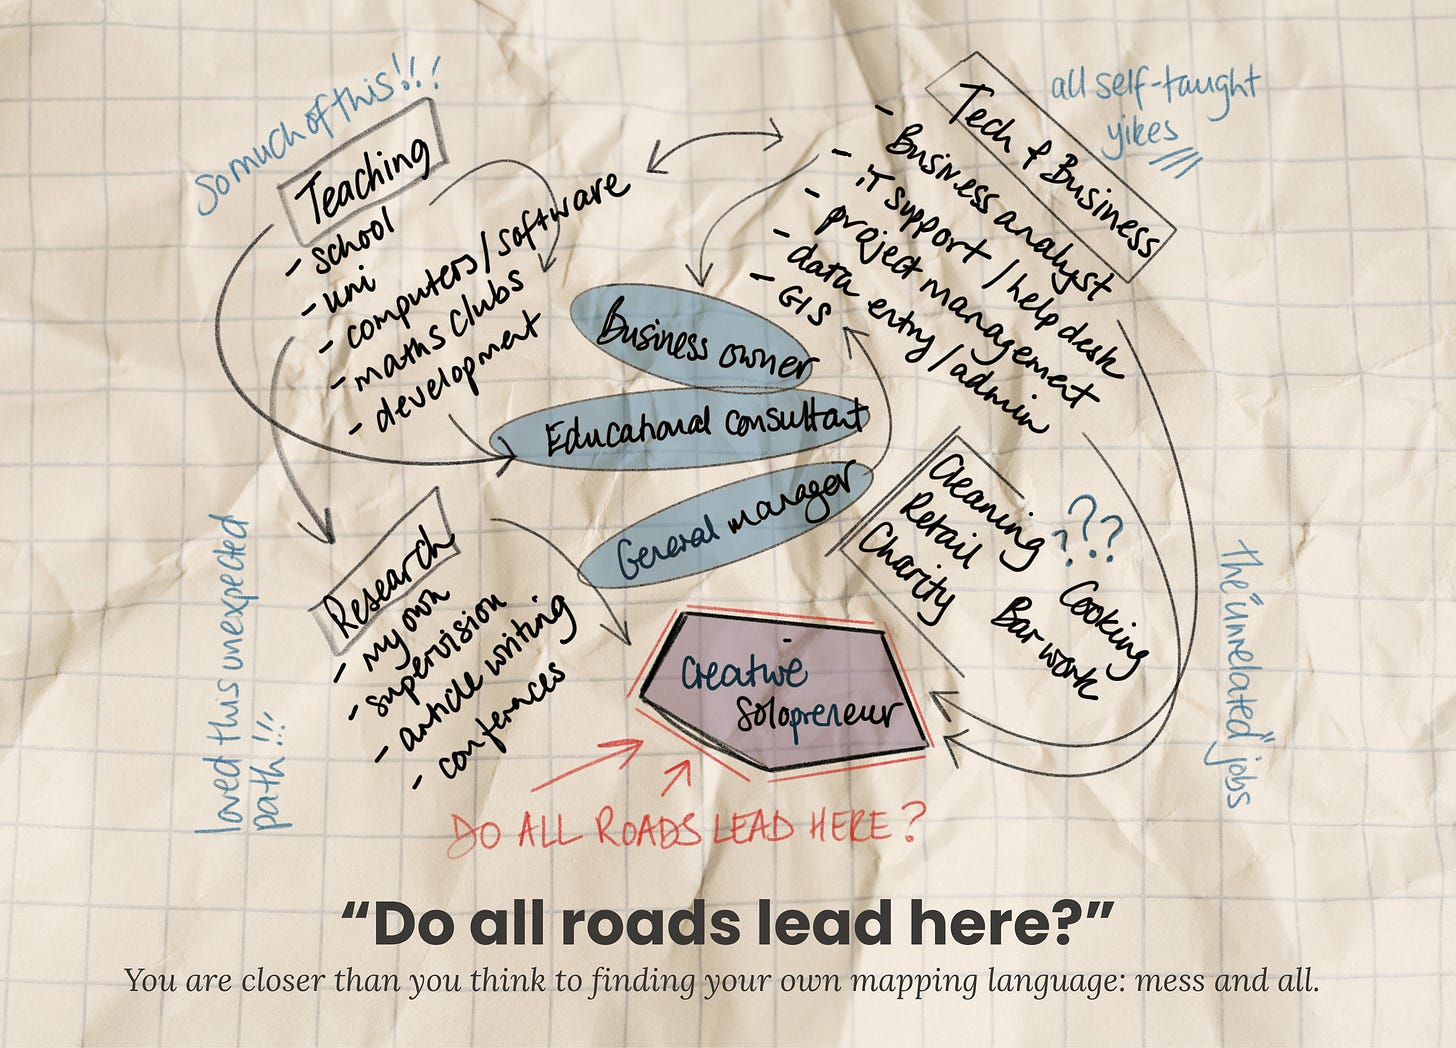 So much of this!!!
Teaching
- school
- uni
- computers/software
- maths clubs
- development
all self-taught
yikes
Tech & Business
- Business analyst
- IT support/help desk
- project management
- data entry/admin
- GIS
Business owner
Educational consultant
General manager
Research
- my own
- supervision
- article writing
- conferences
loved this unexpected
path!!!
Cleaning
Retail
Charity
???
Cooking
Bar work
the "unrelated" jobs
Creative
Solopreneur
DO ALL ROADS LEAD HERE?
“Do all roads lead here?”
You are closer than you think to finding your own mapping language: mess and all.